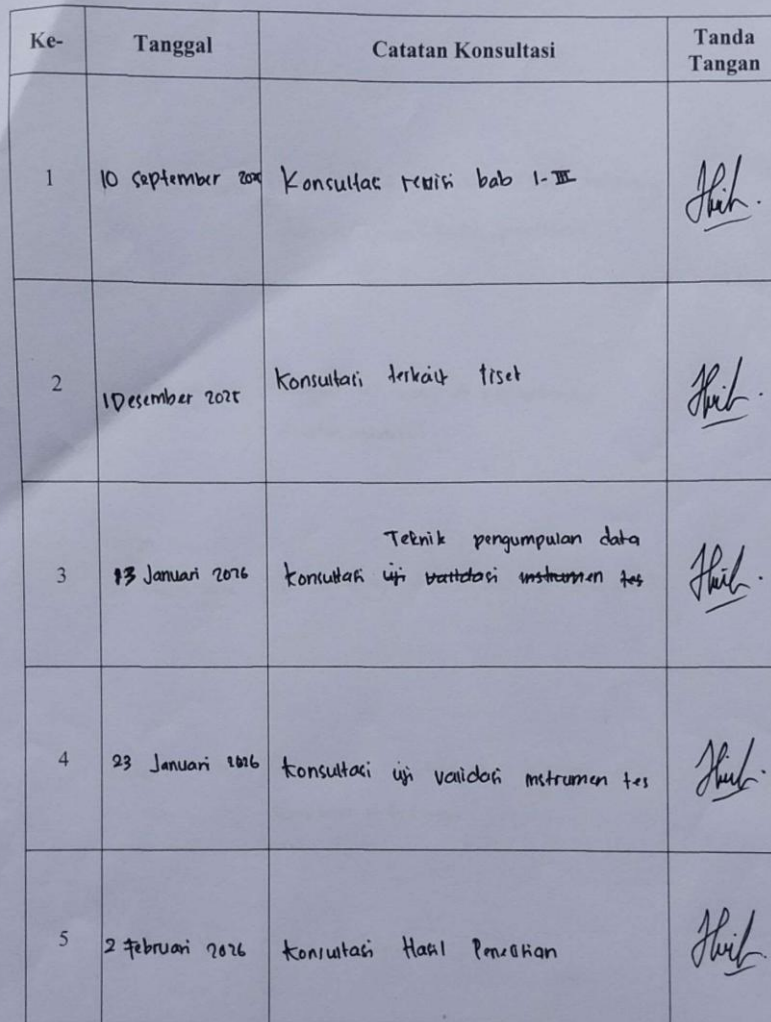 Ke- Tanggal Catatan Konsultasi Tanda Tangan
1 10 September Konsultasi revisi bab I-III
2 1 Desember 2025 Konsultasi terkait riset
Teknik pengumpulan data
3 13 Januari 2026 konsultasi uji validasi instrumen tes
4 23 Januari 2026 konsultasi uji validasi instrumen tes
5 2 Februari 2026 konsultasi Hasil Penelitian